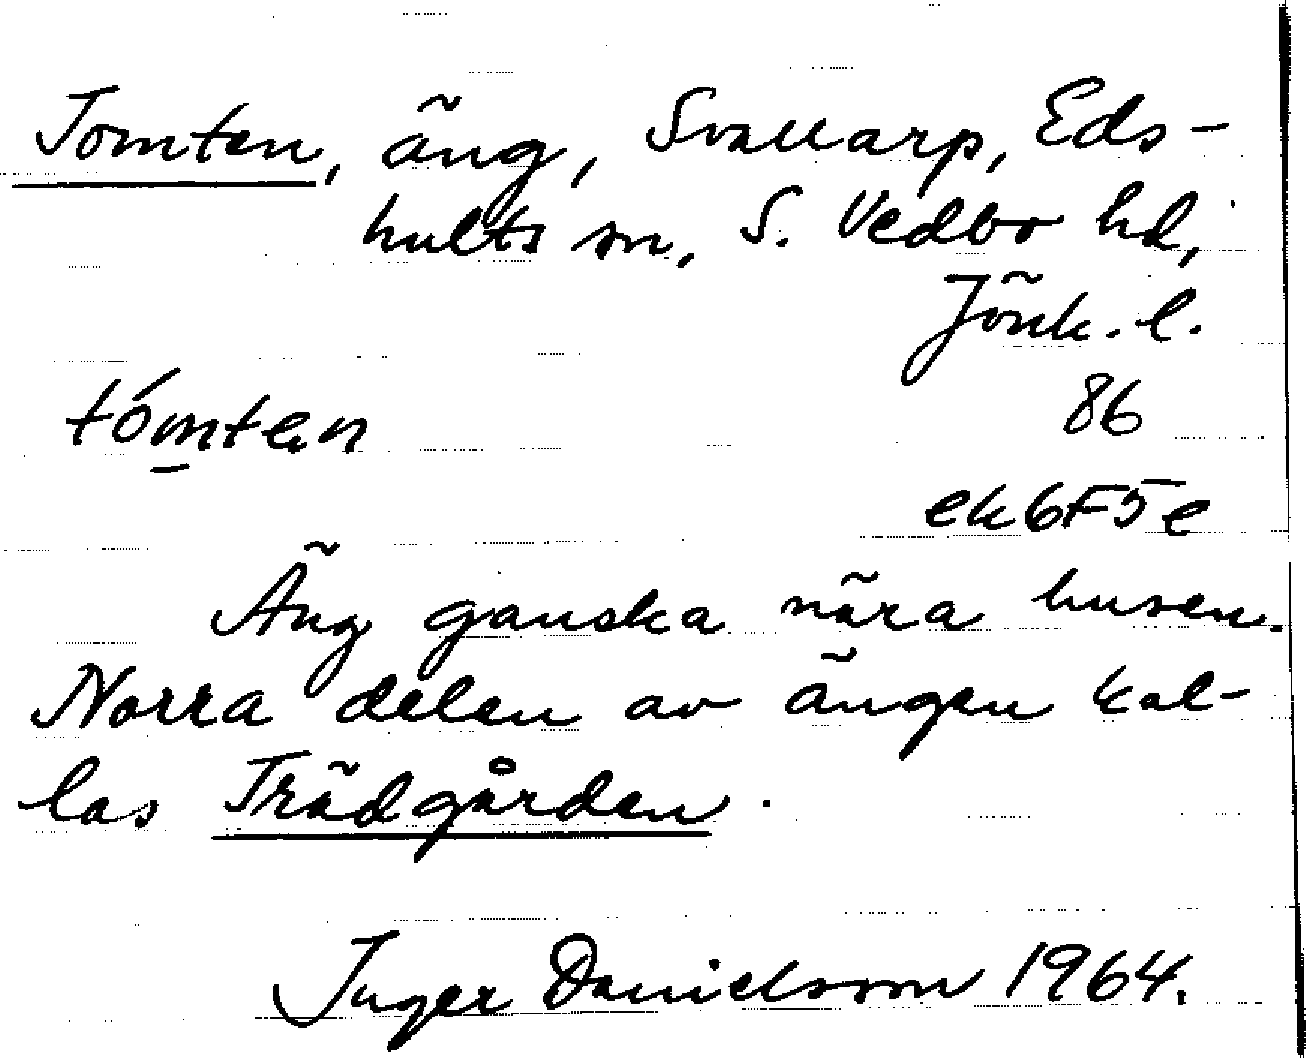 Tomten, äng, Svallarp, Eds-
hults sn, S. Vedbo hd,
Jönk. l.
tómten 86
ek6F5e
Äng ganska nära husen.
Norra delen av ängen kal-
las Trädgården.
Inger Danielsson 1964.